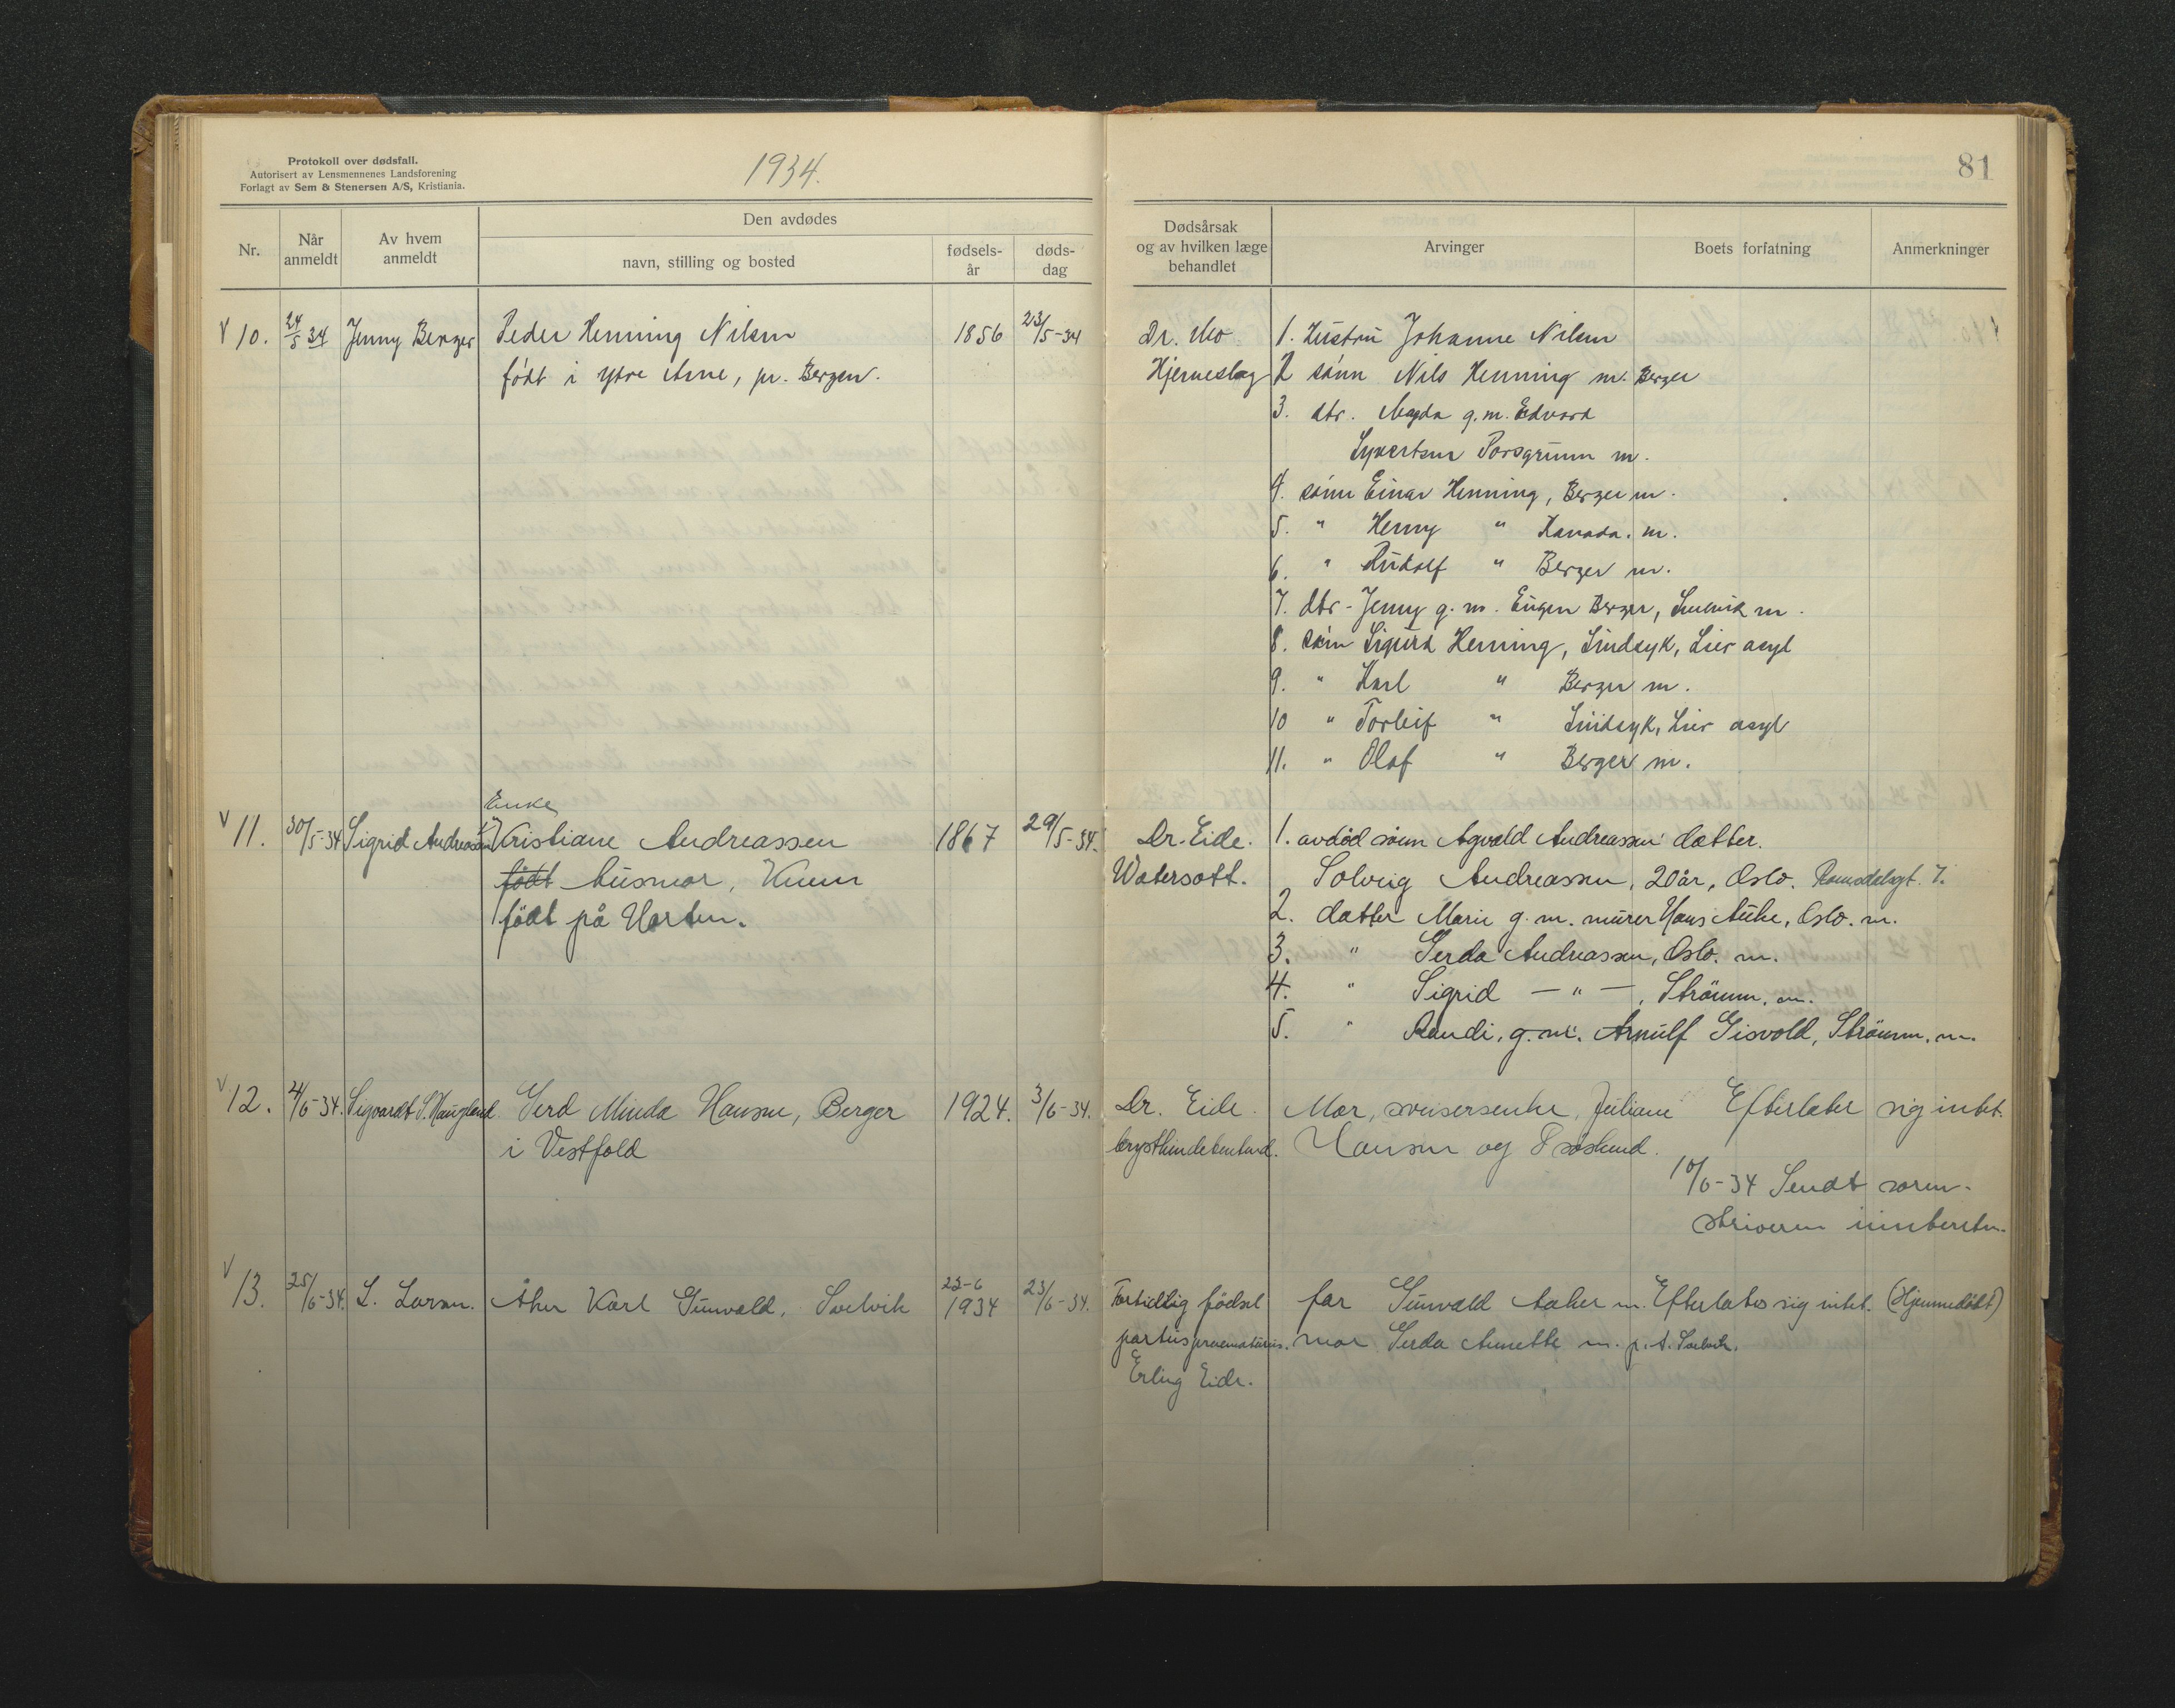 Protokoll over dødsfall.
Autorisert av Lensmennenes Landsforening
Forlagt av Sem & Stenersen A/S, Kristiania.
1934.
Nr.
Når anmeldt
Av hvem anmeldt
Den avdødes
navn, stilling og bosted
fødsels-år
døds-dag
V 10. 24/5 34 Jenny Berger Peder Henning Nilsen 1856 23/5-34
født i ytre Arne, pr. Bergen.
Enke
V 11. 30/5-34 Sigrid Andreassen Kristiane Andreassen 1867 29/5-34.
født husmor,
født på Horten.
V 12. 4/6-34. Sigvardt S. Haugland. Gerd Minda Hansen, Berger 1924. 3/6-34.
i Vestfold
V 13. 25/6-34. L. Larsen. Åker Karl Gunvald, Svelvik 23-6 1934 23/6-34.
81
Dødsårsak
og av hvilken læge
behandlet
Arvinger
Boets forfatning
Anmerkninger
Dr. Mo 1. Hustru Johanne Nilsen
Hjerneslag 2 sønn Nils Henning m. Berger
3. dtr. Magda g.m. Edvard
Syvertsen Porsgrunn m.
4. sønn Einar Henning, Berger m.
5. " Henry " Kanada. m.
6. " Rudolf " Berger m.
7. dtr - Jenny g. m. Eugen Berger, m.
8. sønn Sigurd Henning, Sindsyk, Lier asyl
9. " Karl " Berger m.
10 " Torleif " Sindsyk, Lier asyl
11. " Olaf " Berger m.
Dr. Eide. 1. avdød sønn Agvald Andreassen datter.
Watersott. Solveig Andreassen, 20 år, Oslo. Romsdalsgt. 7.
2. datter Marie g. m. murer Hans Oslo. m.
3. " Gerda Andreassen, Oslo. m.
4. " Sigrid — " — , Strømm. m.
5. " Randi, g. m. Arnulf Gisvold, Strømm. m.
Dr. Eide. Mor, Juliane Efterlater sig intet.
brysthindebetend. Hansen og 8 søskend.
10/6-34 Sendt soren-
skriveren innberetn.
Fortidlig fødsel far Gunvald Aaker m. Efterlater sig intet. (Hjemmedøbt)
partus praematurus. mor Gerda Annette m. p. t. Svelvik.
Erling Eide.